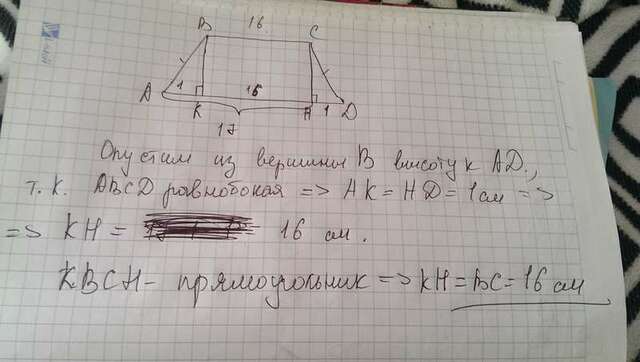 B 16 C
A 1 16 1 D
K H
17
Опустим из вершины B высоту к AD.,
т.к. ABCD равнобокая => AK = HD = 1 см =>
=> KH = 16 см.
KBCH - прямоугольник => KH = BC = 16 см